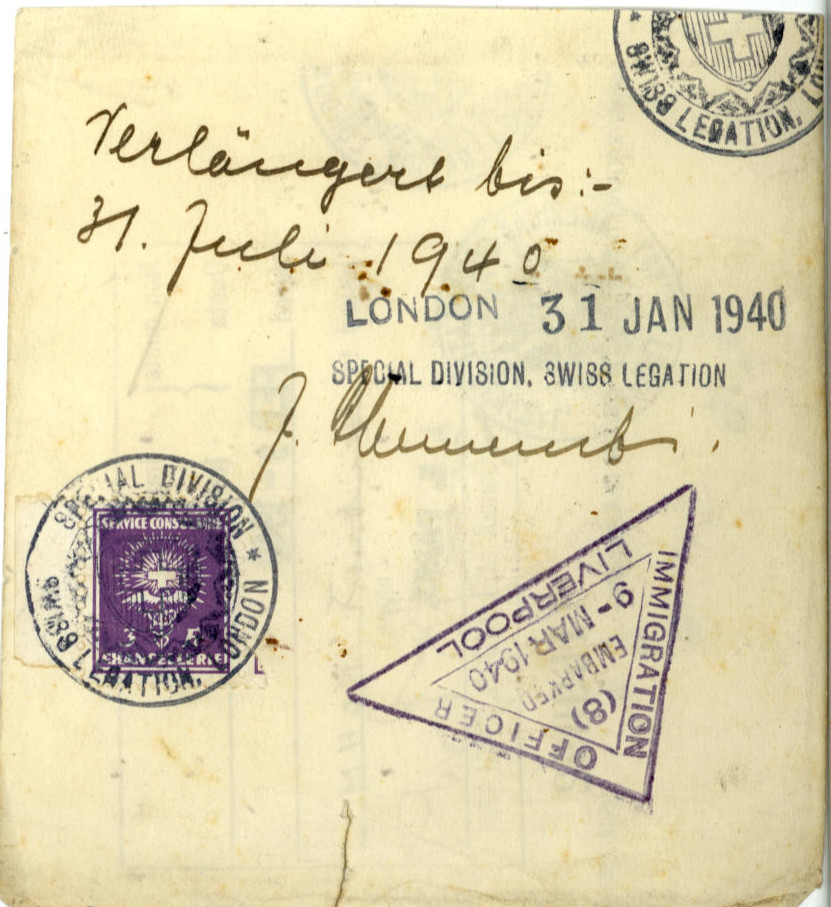 * SWISS LEGATION, LON
Verlängert bis:-
31. Juli 1940
LONDON 31 JAN 1940
SPECIAL DIVISION, SWISS LEGATION
J.
SPECIAL DIVISION * SWISS LEGATION, LONDON
SERVICE CONSULAIRE
3 F
CHANCELLERIE
IMMIGRATION OFFICER
LIVERPOOL
(8)
EMBARKED
9 - MAR 1940